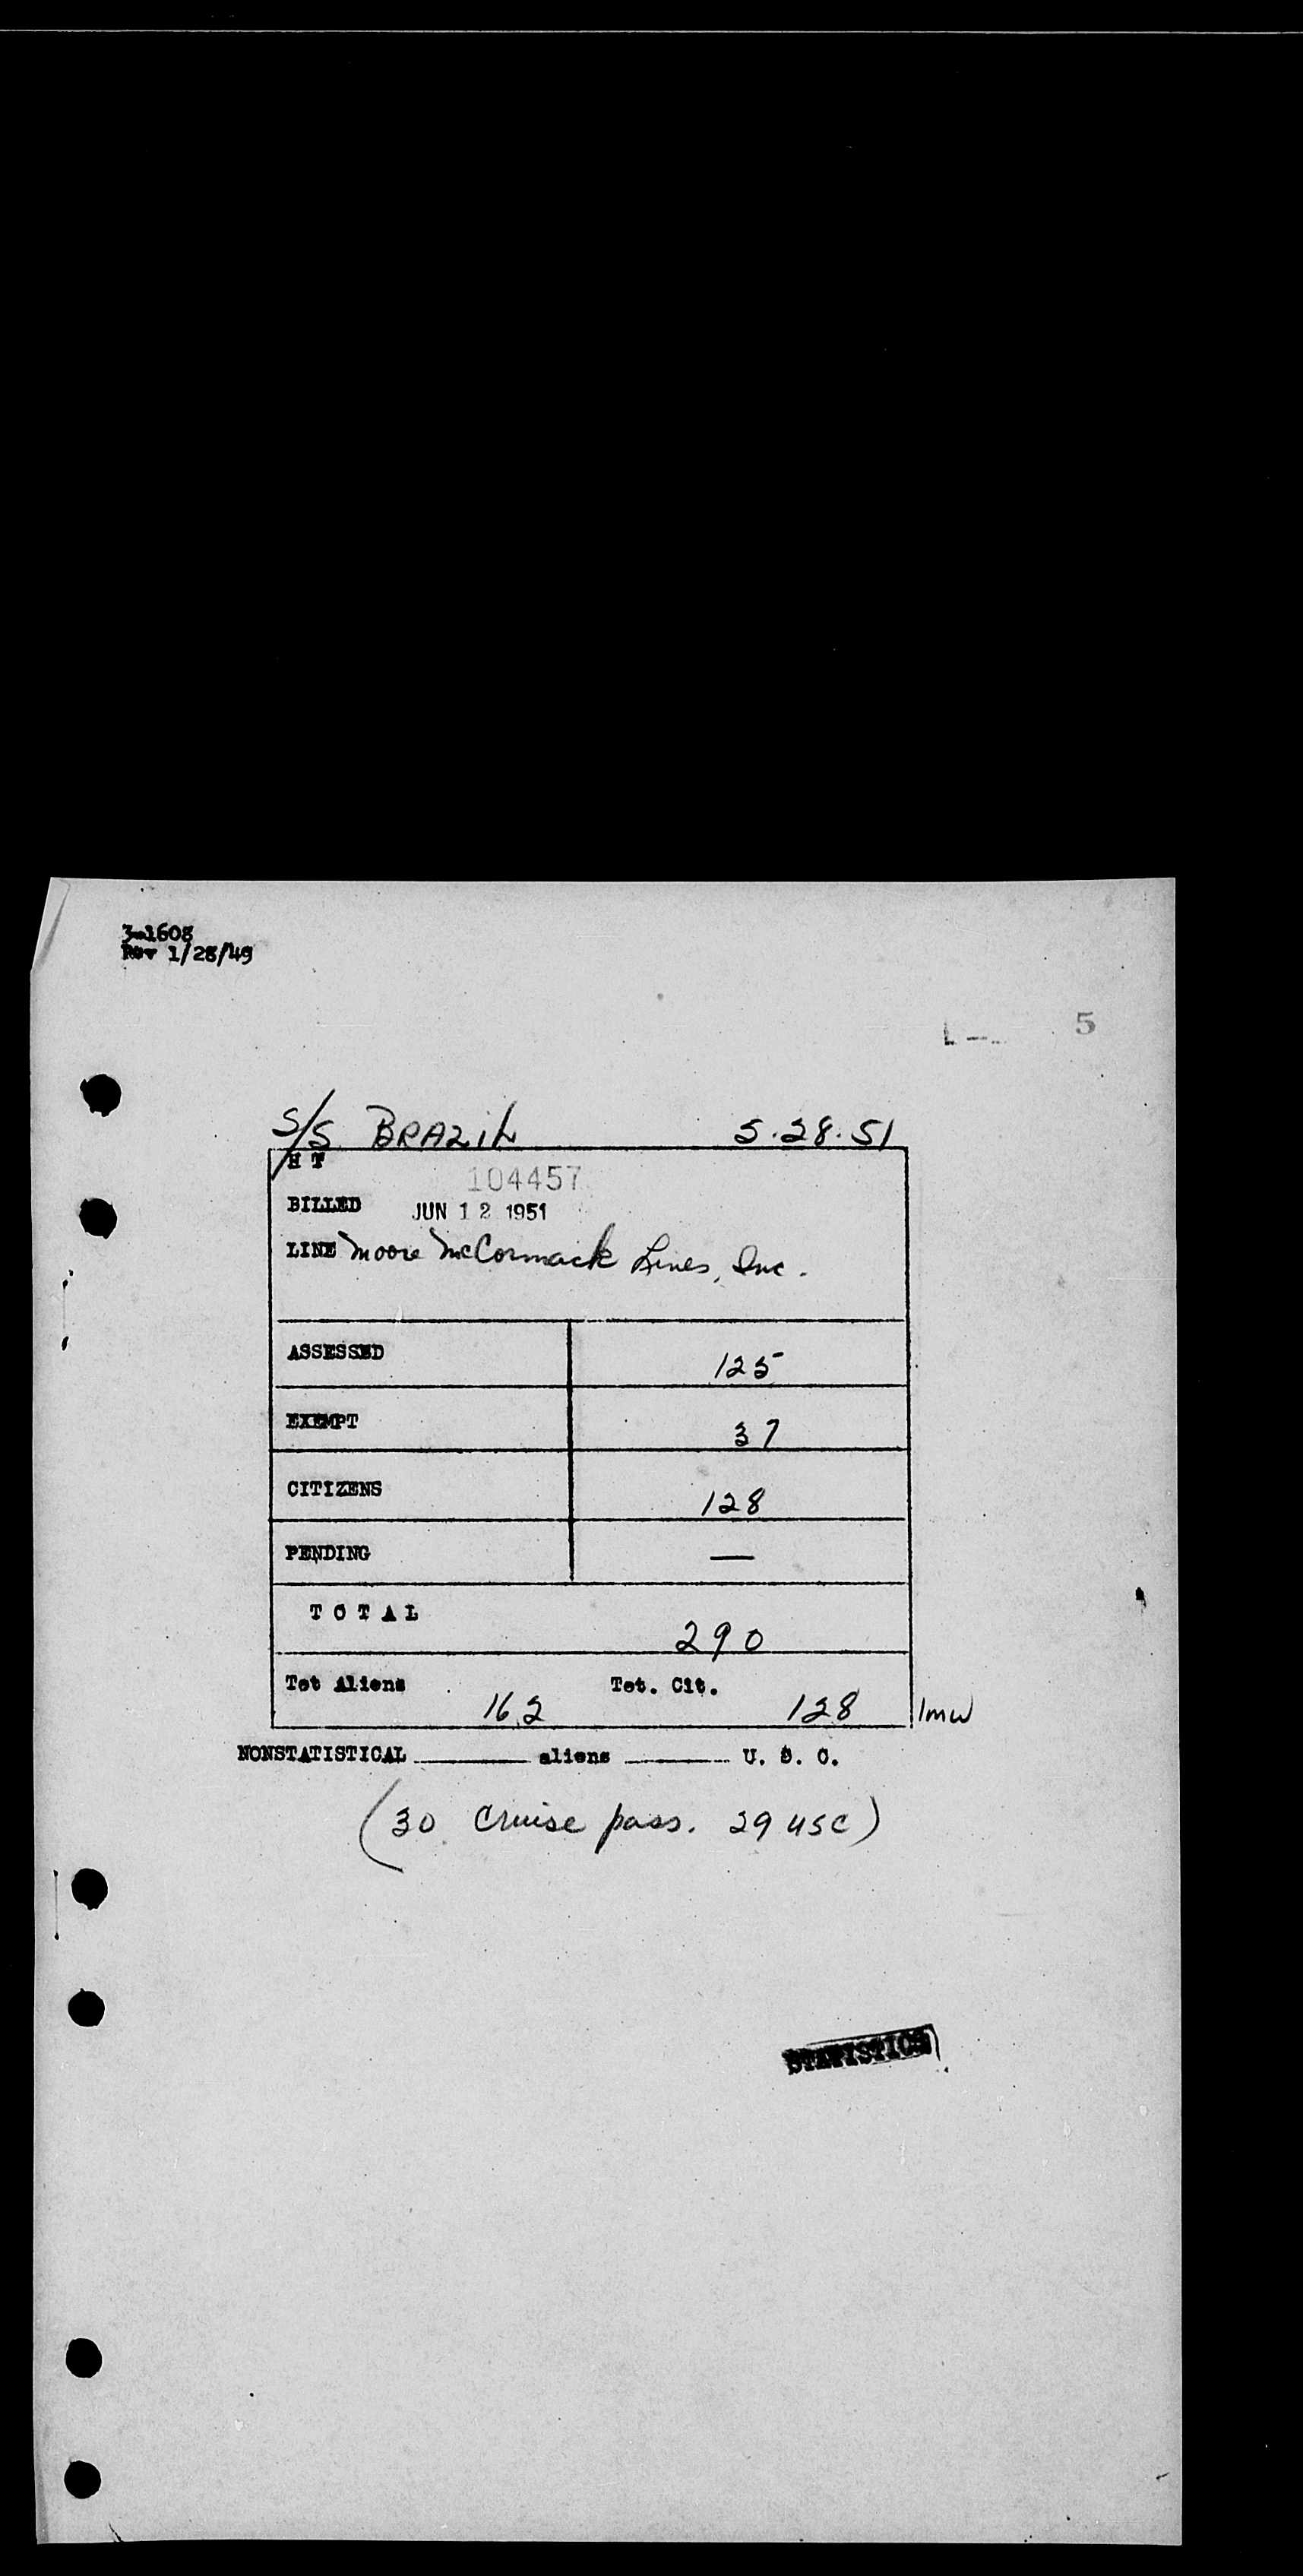 3-1608
Rev 1/28/49
5
S/S BRAZIL 5.28.51
H T
104457
BILLED JUN 12 1951
LINE Moore McCormack Lines, Inc.
ASSESSED 125
EXEMPT 37
CITIZENS 128
PENDING —
TOTAL 290
Tot Aliens 162 Tot. Cit. 128 lmw
NONSTATISTICAL ________ aliens ________ U. S. C.
(30 Cruise pass. 29 USC)
STATISTICS